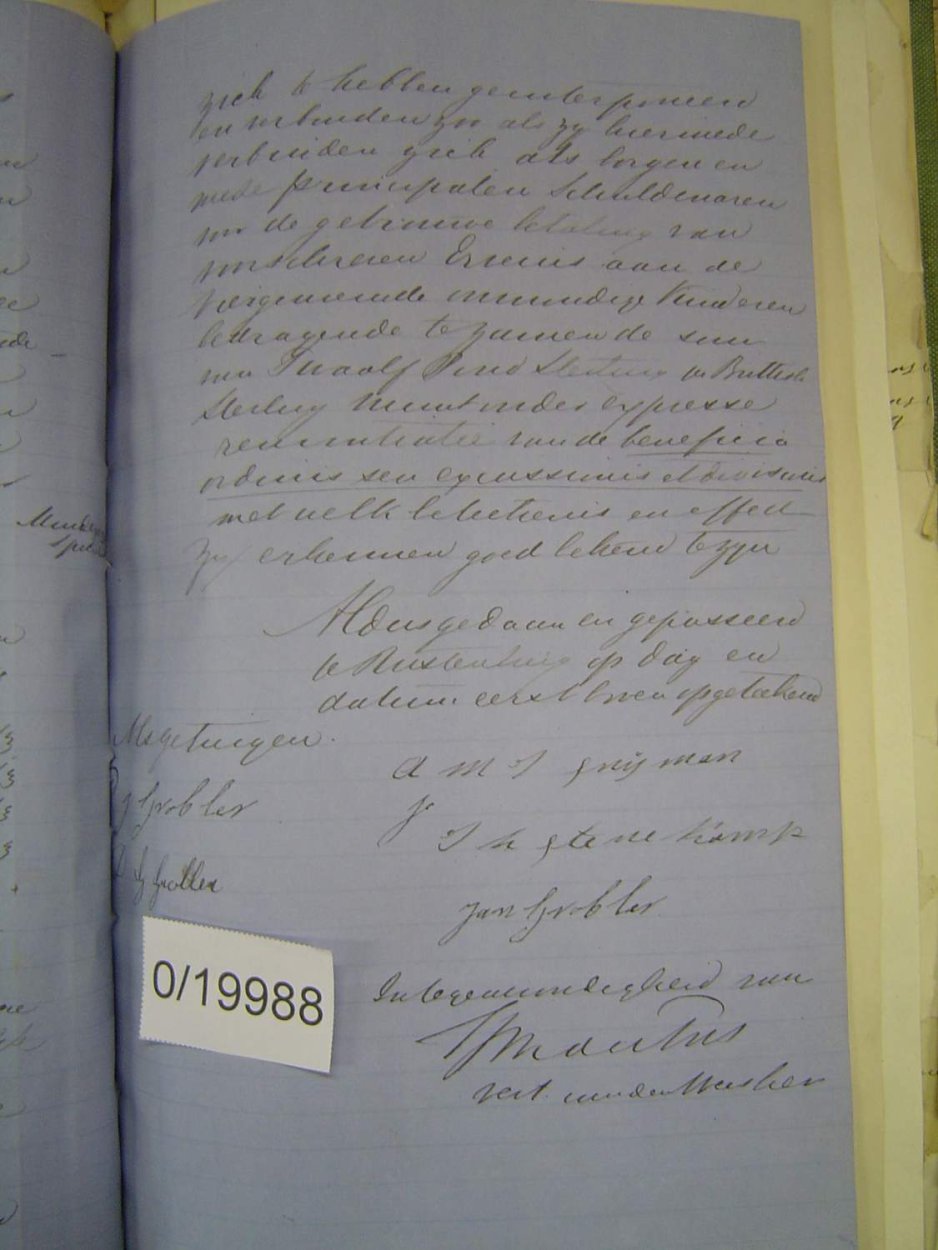 zich te hebben geinterponeerd
en verbinden zoo als zy hiermede
verbinden zich als borgen en
mede principalen Schuldenaren
voor de getrouwe betaling van
voorschreven Erfenis aan de
voorgenoemde onmundige Kinderen
bedragende te zamen de som
van Twaalf Pond Sterling in Brittish
Sterling Munt onder expresse
renuntiatie van de beneficia
ordinis seu excussionis et divisionis
met welk betekenis en effect
zy erkennen goed bekend te zyn
Aldus gedaan en gepasseerd
te Rustenburg op dag en
datum eerst boven opgetekend
Als getuigen.
A M S Snijman
J Grobler
J H Stenekamp
Grobler
Jan Grobler
In tegenwoordigheid van
vert. van den Meester
0/19988